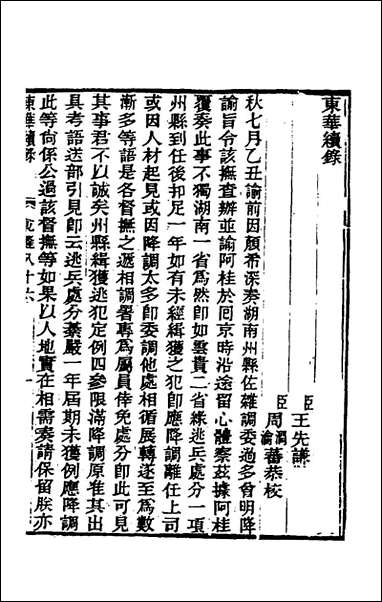 東華續錄
臣王先謙
臣周潤蕃
瀹蕃恭校
秋七月乙丑諭前因顏希深奏湖南州縣佐雜調委過多曾明降
諭旨令該撫查辦並諭阿桂於囘京時沿途留心體察茲據阿桂
覆奏此事不獨湖南一省爲然卽如雲貴二省緣逃兵處分一項
州縣到任後扣足一年如有未經緝獲之犯卽應降調離任上司
或因人材起見或因降調太多卽委調他處相循展轉遂至爲數
漸多等語是各督撫之遞相調署專爲屬員倖免處分卽此可見
其事君不以誠矣州縣緝獲逃犯定例四參限滿降調原准其出
具考語送部引見卽云逃兵處分綦嚴一年屆期未獲例應降調
此等尙係公過該督撫等如果以人地實在相需奏請保留朕亦
東華續錄 乾隆八十六 一